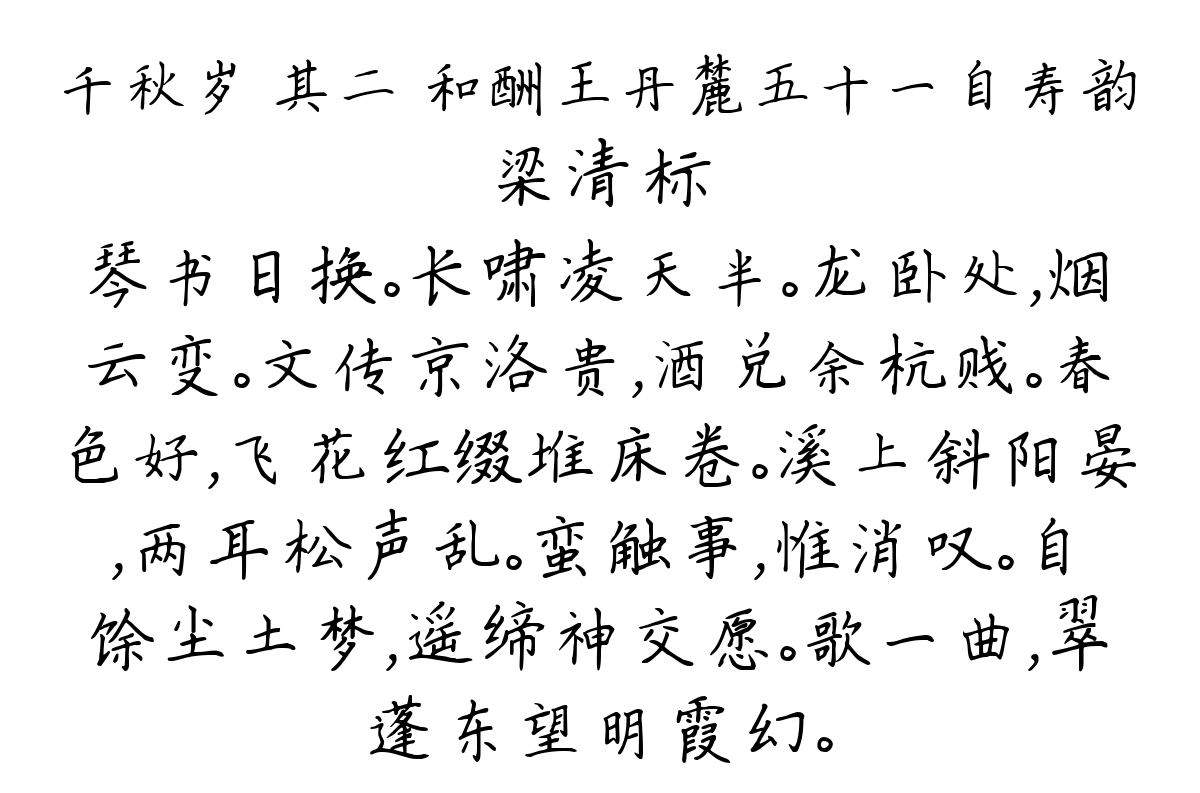 千秋岁 其二 和酬王丹麓五十一自寿韵
梁清标
琴书日换。长啸凌天半。龙卧处,烟
云变。文传京洛贵,酒兑余杭贱。春
色好,飞花红缀堆床卷。溪上斜阳晏
,两耳松声乱。蛮触事,惟消叹。自
馀尘土梦,遥缔神交愿。歌一曲,翠
蓬东望明霞幻。